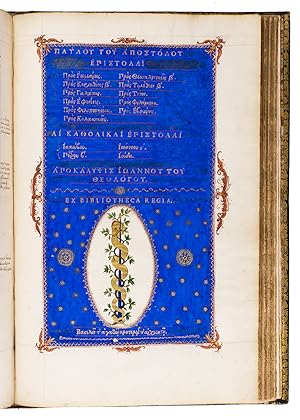 ΠΑΥΛΟΥ ΤΟΥ ΑΠΟΣΤΟΛΟΥ
ΕΠΙΣΤΟΛΑΙ
Πρὸς Ῥωμαίους. Πρὸς Θεσσαλονικεῖς β.
Πρὸς Κορινθίους β. Πρὸς Τιμόθεον β.
Πρὸς Γαλάτας. Πρὸς Τίτον.
Πρὸς Ἐφεσίους. Πρὸς Φιλήμονα.
Πρὸς Φιλιππησίους. Πρὸς Ἑβραίους.
Πρὸς Κολασσαεῖς.
ΑΙ ΚΑΘΟΛΙΚΑΙ ΕΠΙΣΤΟΛΑΙ.
Ἰακώβου. Ἰωάννου γ.
Πέτρου β. Ἰούδα.
ΑΠΟΚΑΛΥΨΙΣ ΙΩΑΝΝΟΥ ΤΟΥ
ΘΕΟΛΟΓΟΥ.
EX BIBLIOTHECA REGIA.